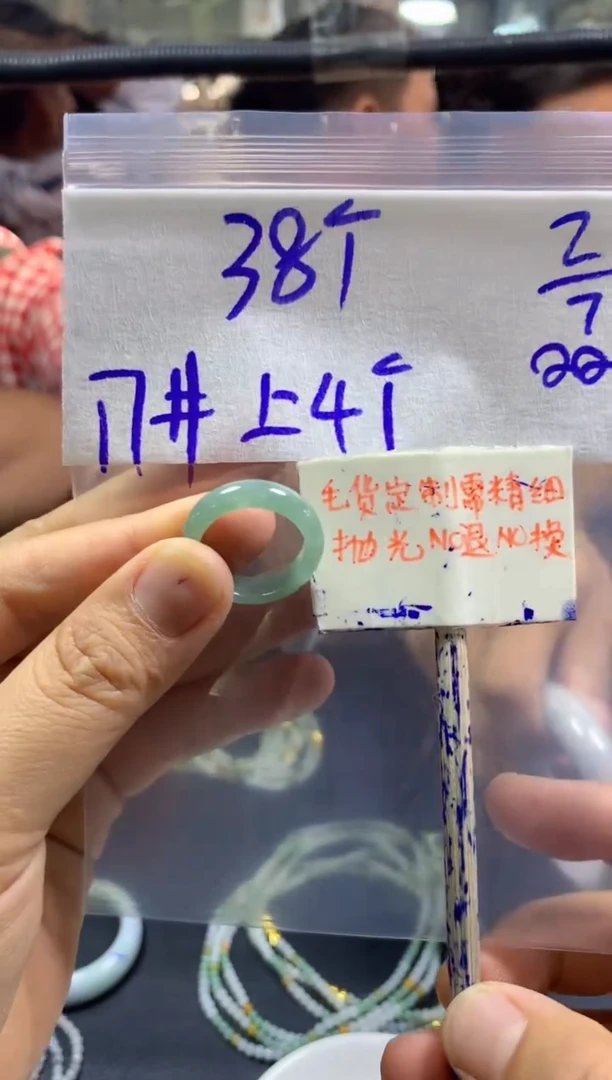 38个
2/7
17井上4个
22
毛货定制需精细
抛光NO退NO换